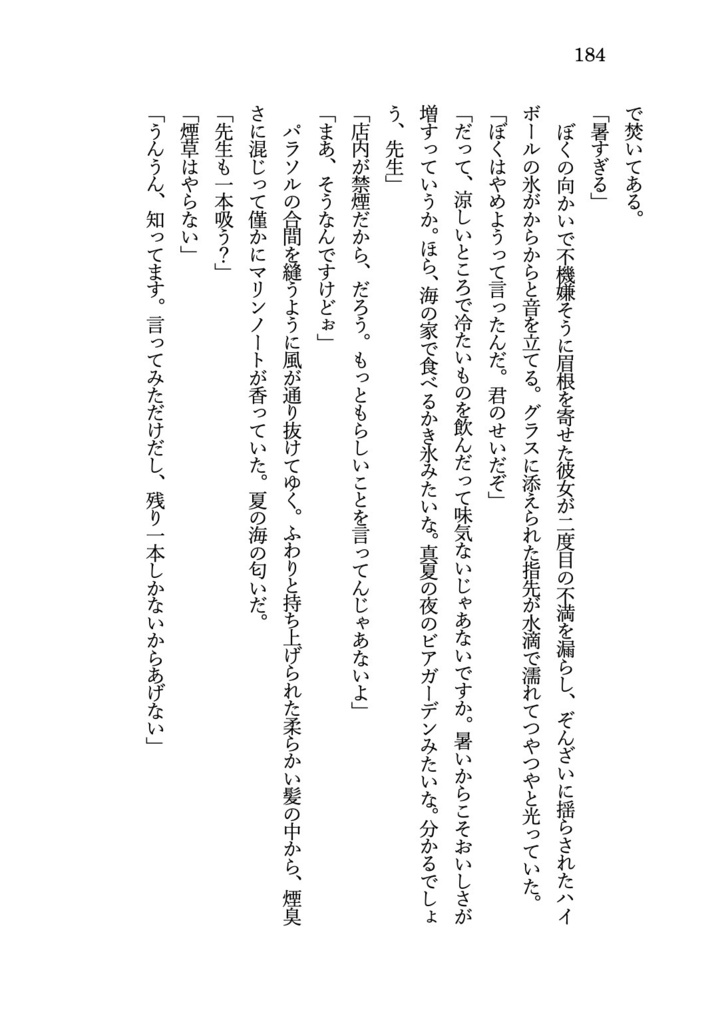 184
で焚いてある。
「暑すぎる」
　ぼくの向かいで不機嫌そうに眉根を寄せた彼女が二度目の不満を漏らし、ぞんざいに揺らされたハイ
ボールの氷がからからと音を立てる。グラスに添えられた指先が水滴で濡れてつやつやと光っていた。
「ぼくはやめようって言ったんだ。君のせいだぞ」
「だって、涼しいところで冷たいものを飲んだって味気ないじゃあないですか。暑いからこそおいしさが
増すっていうか。ほら、海の家で食べるかき氷みたいな。真夏の夜のビアガーデンみたいな。分かるでしょ
う、先生」
「店内が禁煙だから、だろう。もっともらしいことを言ってんじゃあないよ」
「まあ、そうなんですけどぉ」
　パラソルの合間を縫うように風が通り抜けてゆく。ふわりと持ち上げられた柔らかい髪の中から、煙臭
さに混じって僅かにマリンノートが香っていた。夏の海の匂いだ。
「先生も一本吸う？」
「煙草はやらない」
「うんうん、知ってます。言ってみただけだし、残り一本しかないからあげない」